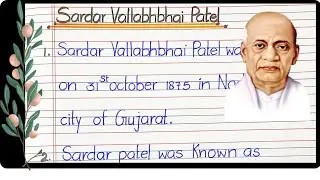 Sardar Vallabhbhai Patel
1. Sardar Vallabhbhai Patel wa
on 31st october 1875 in Na
city of Gujarat.
2. Sardar patel was Known as